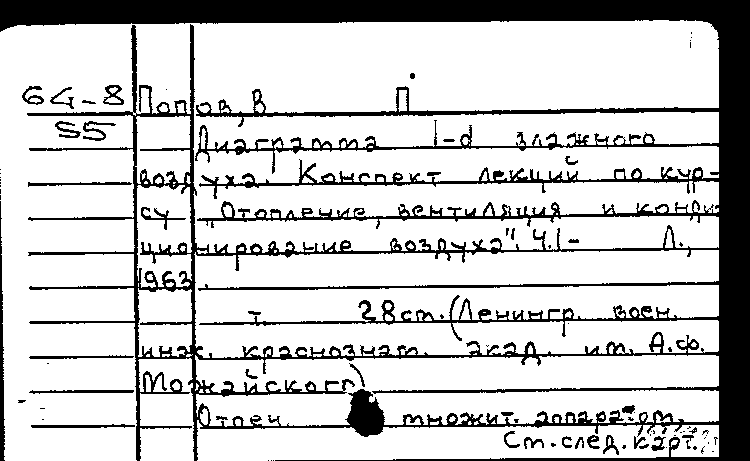 64-8 Попов, В П.
55 Диаграмма I-d влажного
воздуха. Конспект лекций по кур-
су "Отопление, вентиляция и конди
ционирование воздуха". Ч.I- Л.,
1963.
т. 28 ст. (Ленингр. воен.
инж. краснознам. акад. им. А.Ф.
Можайского
Отпеч. множит. аппаратом,
См. след. карт.